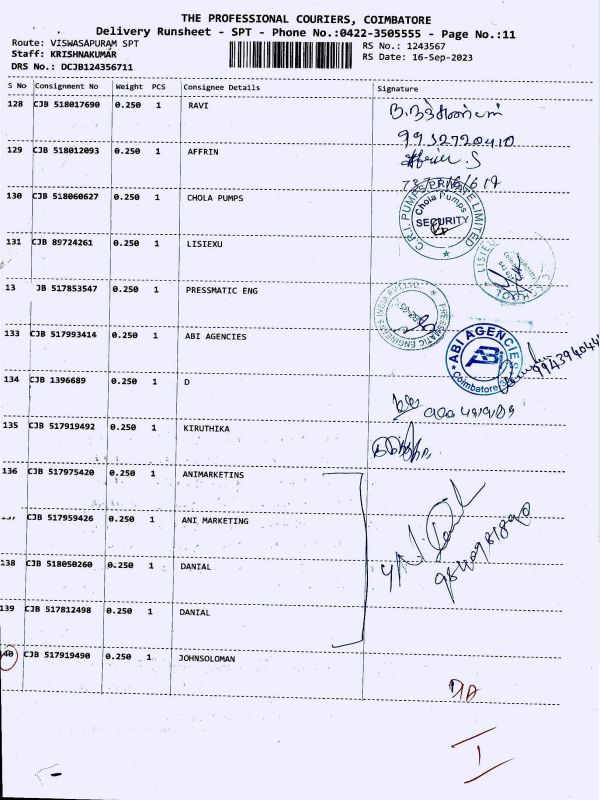 THE PROFESSIONAL COURIERS, COIMBATORE
Delivery Runsheet - SPT - Phone No.:0422-3505555 - Page No.:11
Route: VISWASAPURAM SPT
RS No.: 1243567
Staff: KRISHNAKUMAR
RS Date: 16-Sep-2023
DRS No.: DCJB124356711
S No Consignment No Weight PCS Consignee Details Signature
128 CJB 518017690 0.250 1 RAVI
9952720410
129 CJB 518012093 0.250 1 AFFRIN
130 CJB 518060627 0.250 1 CHOLA PUMPS
C.R.I. PUMPS PRIVATE LIMITED
Chola Pumps
SECURITY
131 CJB 89724261 0.250 1 LISIEXU
13 JB 517853547 0.250 1 PRESSMATIC ENG
133 CJB 517993414 0.250 1 ABI AGENCIES
ABI AGENCIES
ABi
Coimbatore
134 CJB 1396689 0.250 1 D
135 CJB 517919492 0.250 1 KIRUTHIKA
136 CJB 517975420 0.250 1 ANIMARKETINS
CJB 517959426 0.250 1 ANI MARKETING
138 CJB 518050260 0.250 1 DANIAL
139 CJB 517812498 0.250 1 DANIAL
140 CJB 517919490 0.250 1 JOHNSOLOMAN